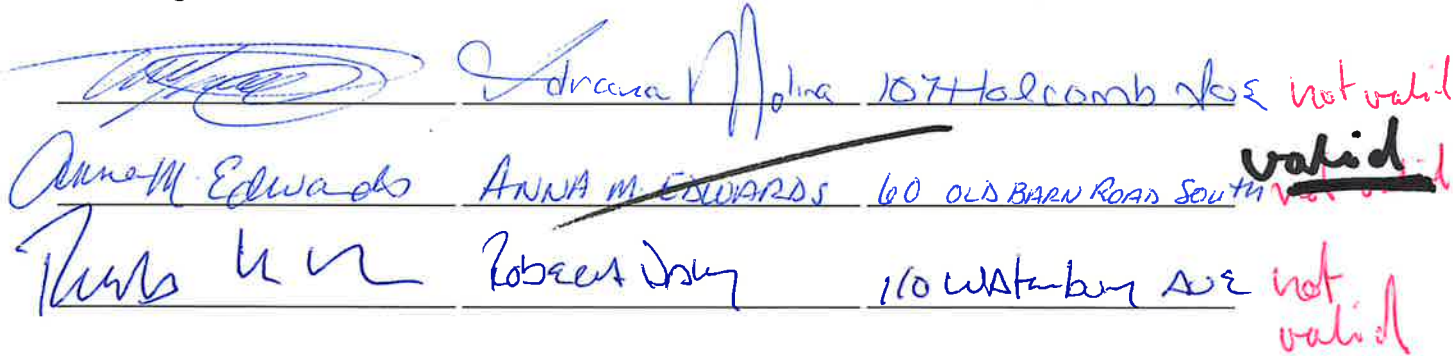 Adriana Molina 107 Holcomb Ave not valid
Anna M. Edwards ANNA M. EDWARDS 60 OLD BARN ROAD SOUTH valid
Robert 110 Waterbury Ave not
valid